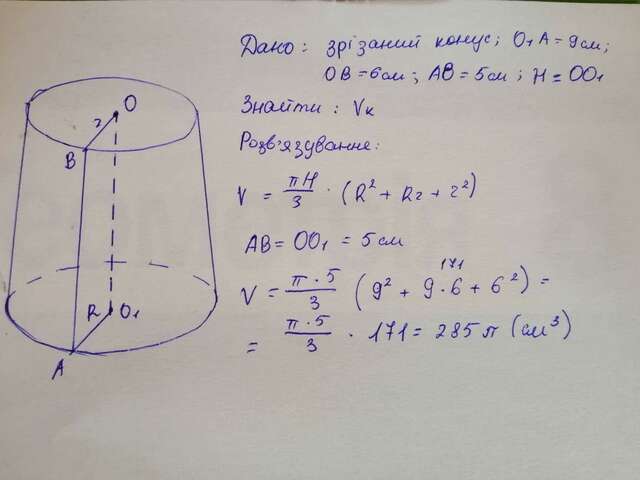 Дано: зрізаний конус; O₁A = 9см;
OB = 6см; AB = 5см; H = OO₁
Знайти: Vк
Розв'язування:
V = πH/3 · (R² + Rr + r²)
AB = OO₁ = 5см
171
V = π·5/3 (9² + 9·6 + 6²) =
= π·5/3 · 171 = 285π (см³)
O
r
B
R O₁
A